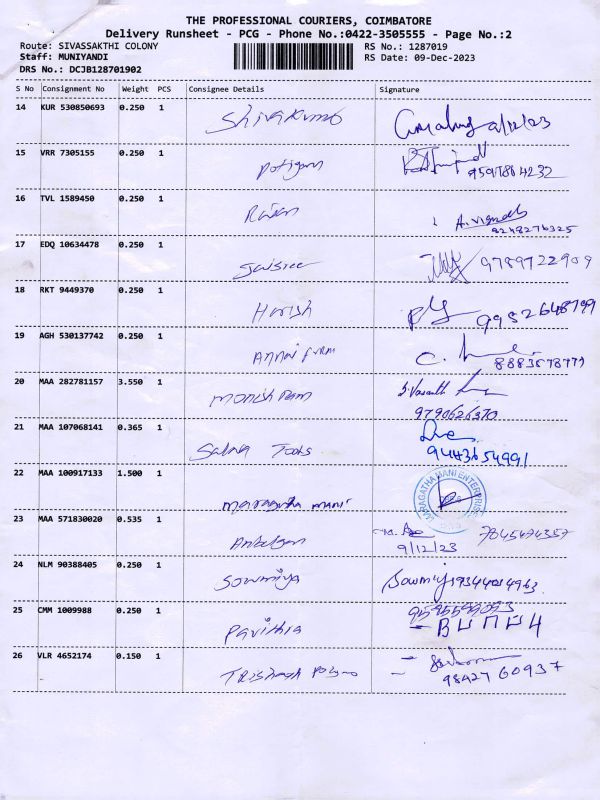 THE PROFESSIONAL COURIERS, COIMBATORE
Delivery Runsheet - PCG - Phone No.:0422-3505555 - Page No.:2
Route: SIVASSAKTHI COLONY
RS No.: 1287019
Staff: MUNIYANDI
RS Date: 09-Dec-2023
DRS No.: DCJB128701902
S No Consignment No Weight PCS Consignee Details Signature
14 KUR 530850693 0.250 1
Shivakumo 9/12/23
15 VRR 7305155 0.250 1
16 TVL 1589450 0.250 1
Rajan A.Vignesh
9248276325
17 EDQ 10634478 0.250 1
Jaisree 9789722909
18 RKT 9449370 0.250 1
Harish 9952648799
19 AGH 530137742 0.250 1
Annai furm
8883678779
20 MAA 282781157 3.550 1
Monish Ram J.Vasanth
9790626370
21 MAA 107068141 0.365 1
Tools
9443654991
22 MAA 100917133 1.500 1
Maragatha mani MARAGATHA MANI ENTERPRISE
23 MAA 571830020 0.535 1
Anbalgan 7845474357
9/12/23
24 NLM 90388405 0.250 1
Sowmiya Sowmiy
25 CMM 1009988 0.250 1
Pavithra
26 VLR 4652174 0.150 1
98427 60937